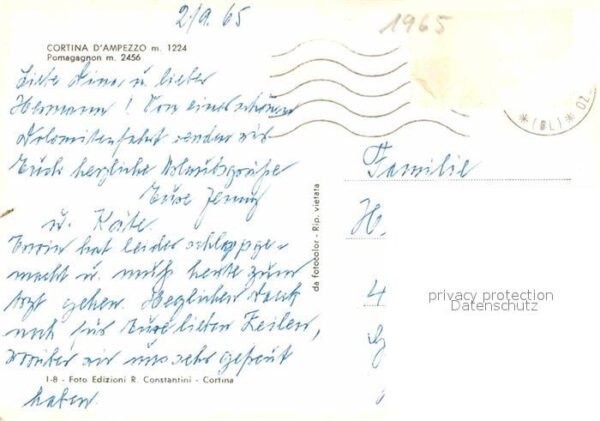 2/9. 65
1965
CORTINA D'AMPEZZO m. 1224
Pomagagnon m. 2456
Liebe Dina u. lieber
Hermann! Von einer schönen
Dolomitenfahrt senden wir
Euch herzliche Urlaubsgrüße
Eure Jenny
u. Käte.
Erwin hat leider schlappge-
macht u. muß heute zum
Arzt gehen. Herzlichen Dank
noch für Eure lieben Zeilen,
worüber wir uns sehr gefreut
haben.
I-8 - Foto Edizioni R. Constantini - Cortina
da fotocolor - Rip. vietata
*(BL)* 02
Familie
H.
4
privacy protection
Datenschutz